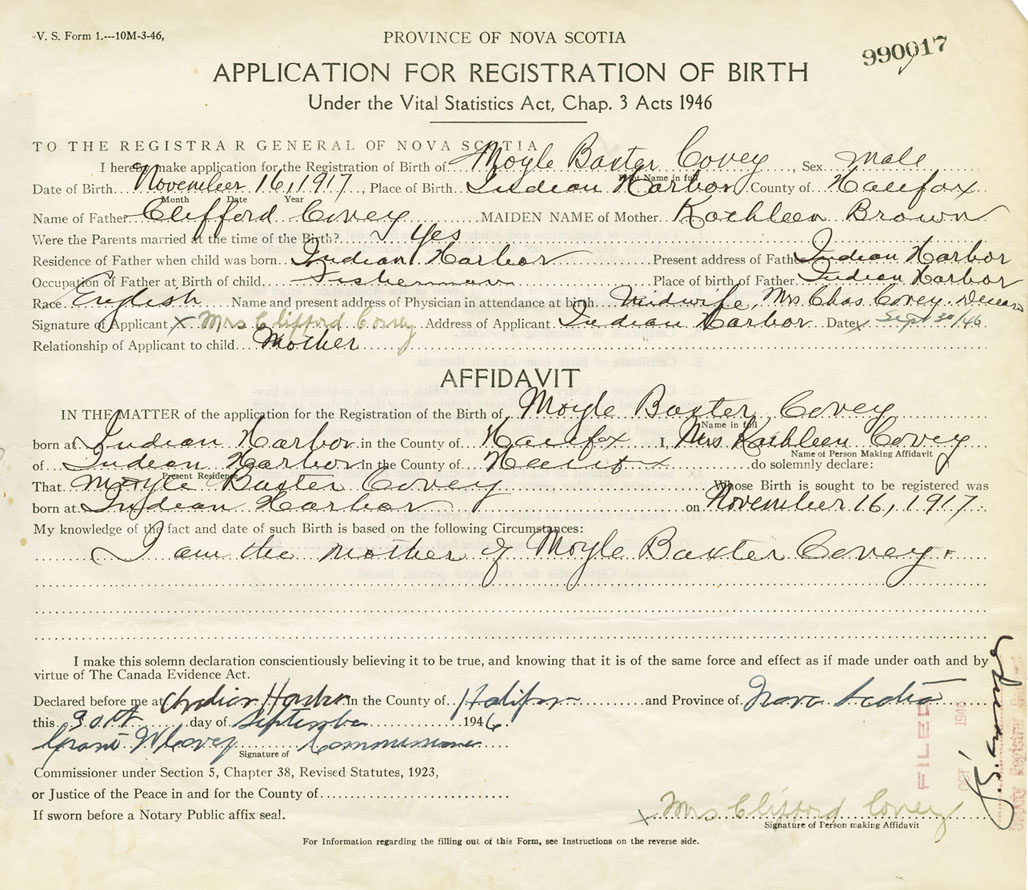 V. S. Form 1.---10M-3-46,
PROVINCE OF NOVA SCOTIA
990017
APPLICATION FOR REGISTRATION OF BIRTH
Under the Vital Statistics Act, Chap. 3 Acts 1946
TO THE REGISTRAR GENERAL OF NOVA SCOTIA
I hereby make application for the Registration of Birth of Moyle Baxter Covey, Sex Male
Print Name in full
Date of Birth November 16, 1917, Place of Birth Indian Harbor County of Halifax
Month Date Year
Name of Father Clifford Covey MAIDEN NAME of Mother Kathleen Brown
Were the Parents married at the time of the Birth? Yes
Residence of Father when child was born Indian Harbor Present address of Father Indian Harbor
Occupation of Father at Birth of child Fisherman Place of birth of Father Indian Harbor
Race English Name and present address of Physician in attendance at birth Midwife, Mrs Chas. Covey.
Signature of Applicant x Mrs Clifford Covey Address of Applicant Indian Harbor Date Sept 30/46
Relationship of Applicant to child Mother
AFFIDAVIT
IN THE MATTER of the application for the Registration of the Birth of Moyle Baxter Covey
Name in full
born at Indian Harbor in the County of Halifax I, Mrs Kathleen Covey
Name of Person Making Affidavit
of Indian Harbor in the County of Halifax do solemnly declare:
Present Residence
That Moyle Baxter Covey Whose Birth is sought to be registered was
born at Indian Harbor on November 16, 1917.
My knowledge of the fact and date of such Birth is based on the following Circumstances:
I am the mother of Moyle Baxter Covey.
I make this solemn declaration conscientiously believing it to be true, and knowing that it is of the same force and effect as if made under oath and by
virtue of The Canada Evidence Act.
Declared before me at Indian Harbor in the County of Halifax and Province of Nova Scotia
this 30th day of September 1946
Grant W Covey Commissioner
Signature of
Commissioner under Section 5, Chapter 38, Revised Statutes, 1923,
or Justice of the Peace in and for the County of
If sworn before a Notary Public affix seal.
x Mrs Clifford Covey
Signature of Person making Affidavit
For Information regarding the filling out of this Form, see Instructions on the reverse side.
FILED
OCT 1946
Deputy Registrar